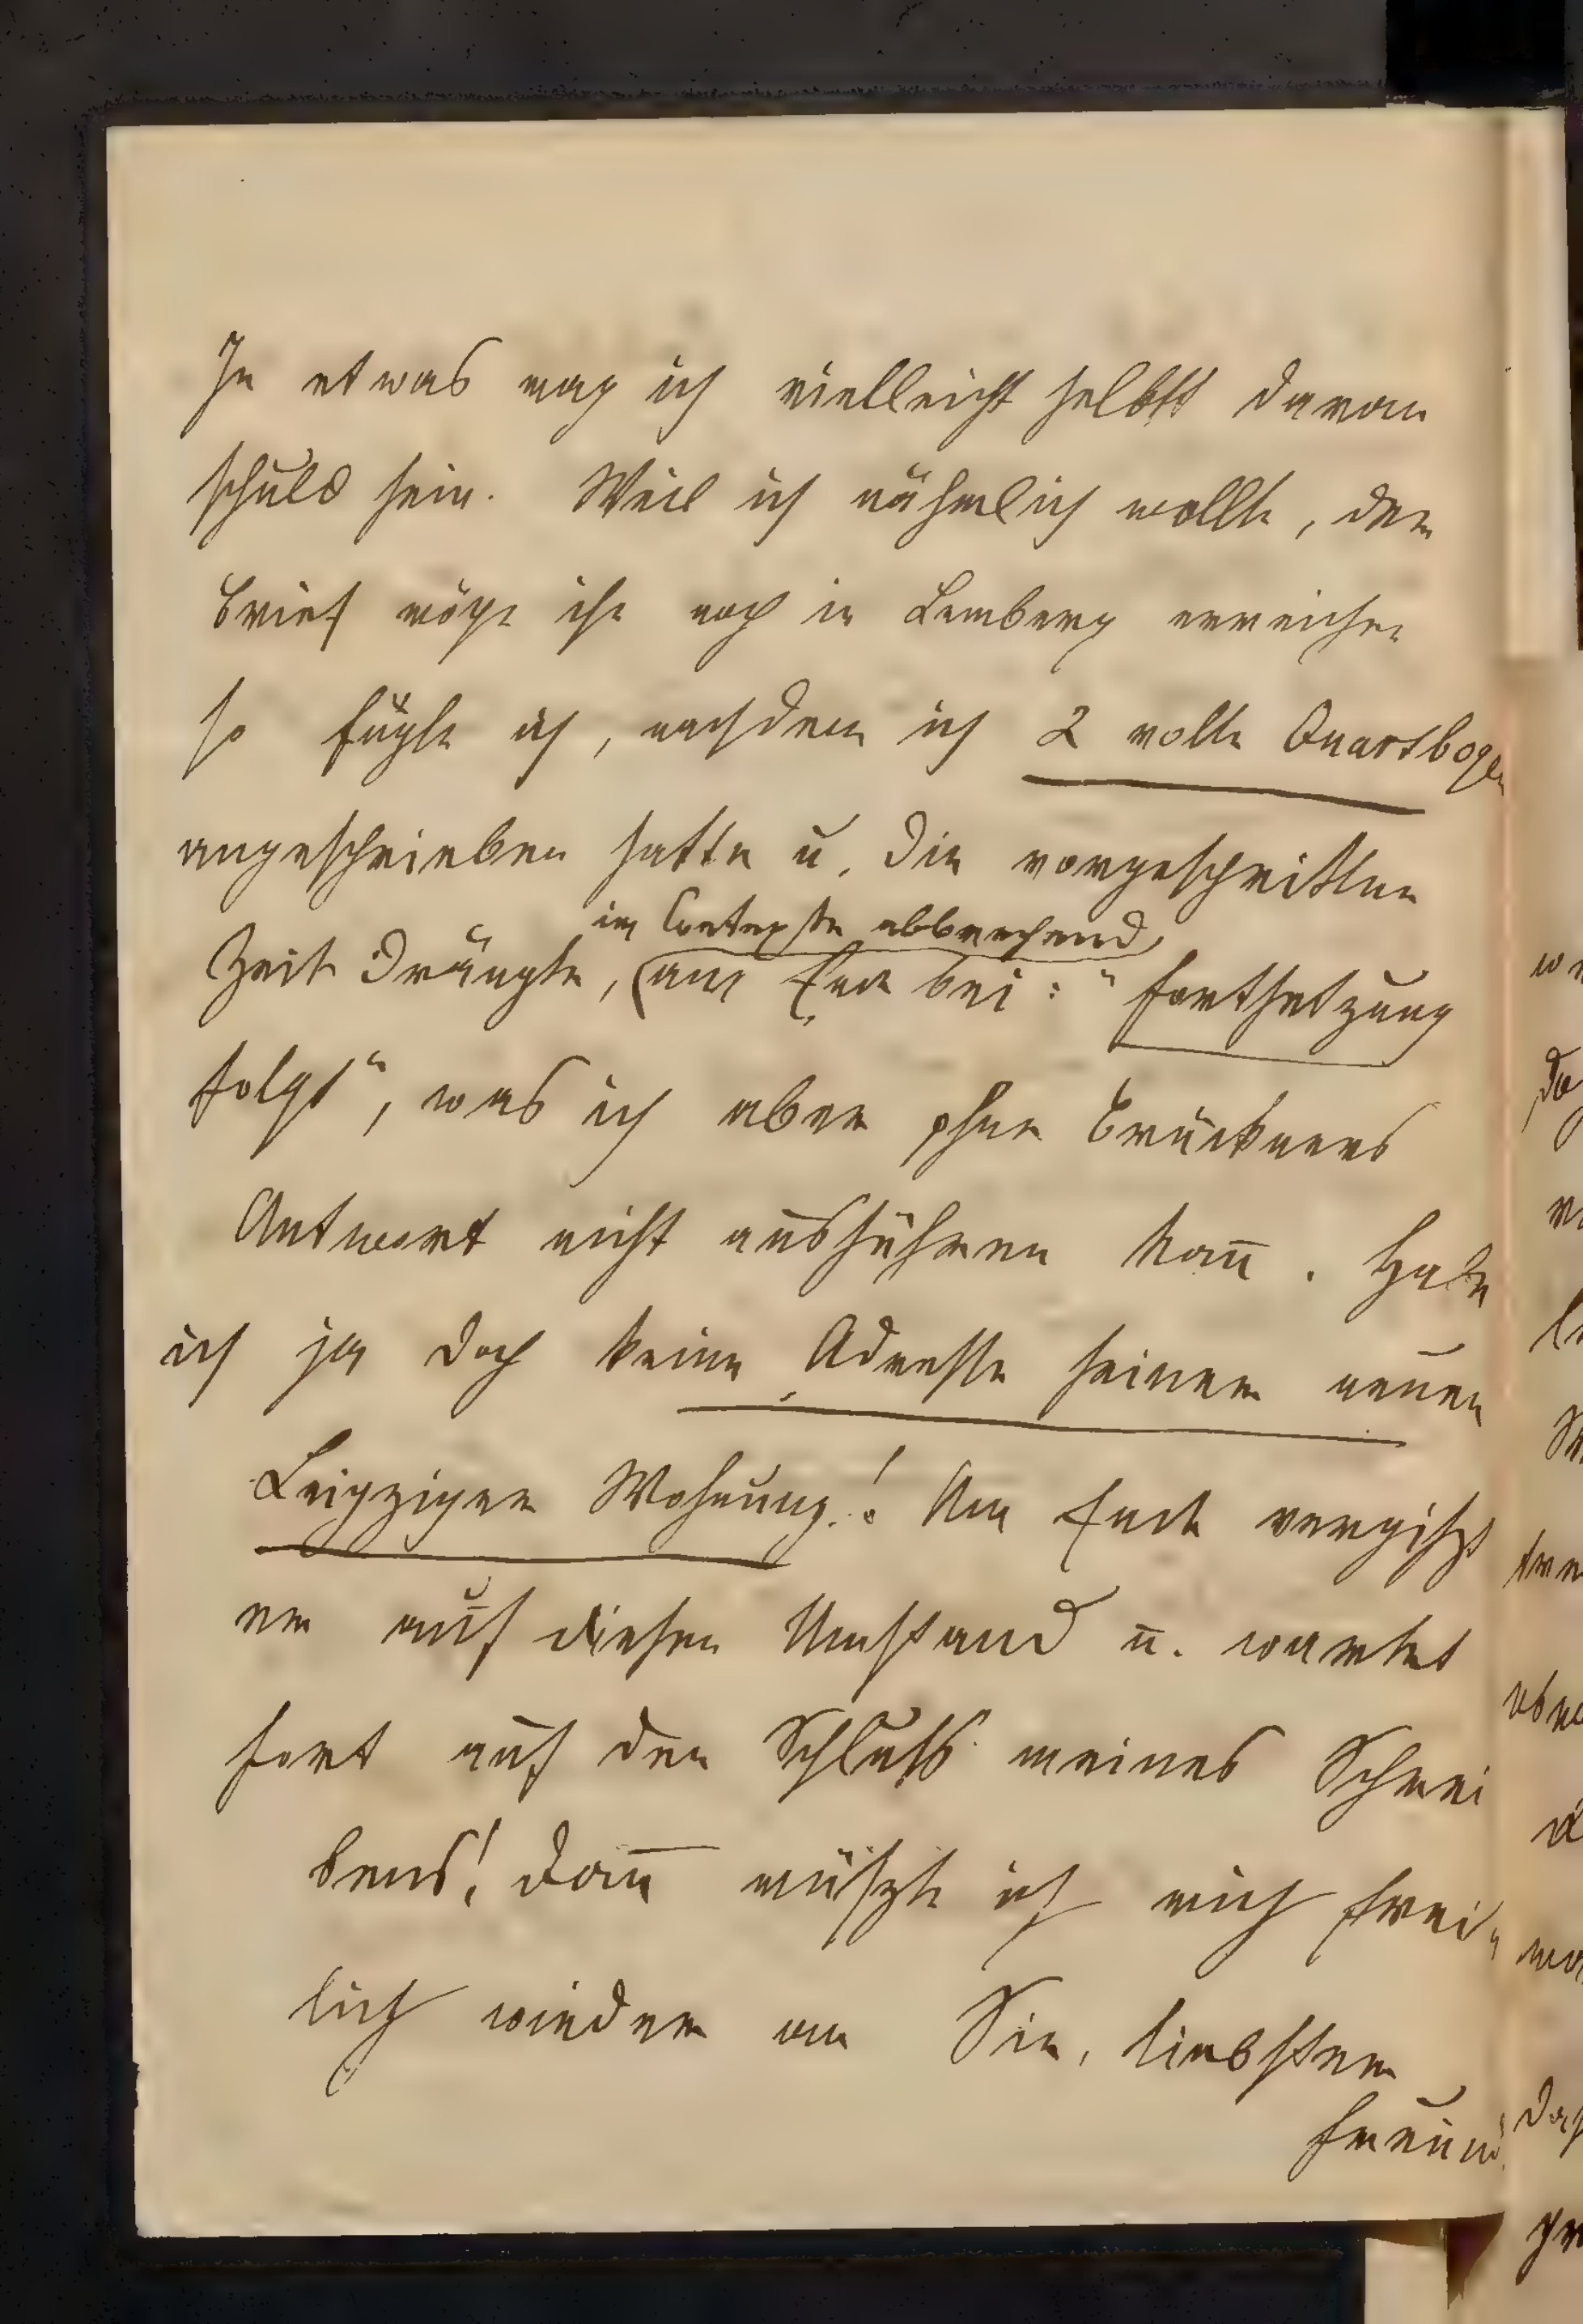 In etwas mag ich vielleicht selbst daran
schuld sein. Weil ich nähmlich wollte, der
Brief möge ihn noch in Lemberg erreichen
so fügte ich, nachdem ich 2 volle Quartbogen
angeschrieben hatte u. die vorgeschrittene
im Contexte abbrechend
Zeit drängte, (am Ende bei: "Fortsetzung
folgt", was ich aber ohne Brückners
Antwort nicht ausführen kan̄. Habe
ich ja doch keine Adresse seiner neuen
Leipziger Wohnung! Am Ende vergiszt
er auf diesen Umstand u. wartet
fort auf den Schluss meines Schrei
bens! Dan̄ müszte ich mich frei-
lich wieder an Sie, liebster
Freund